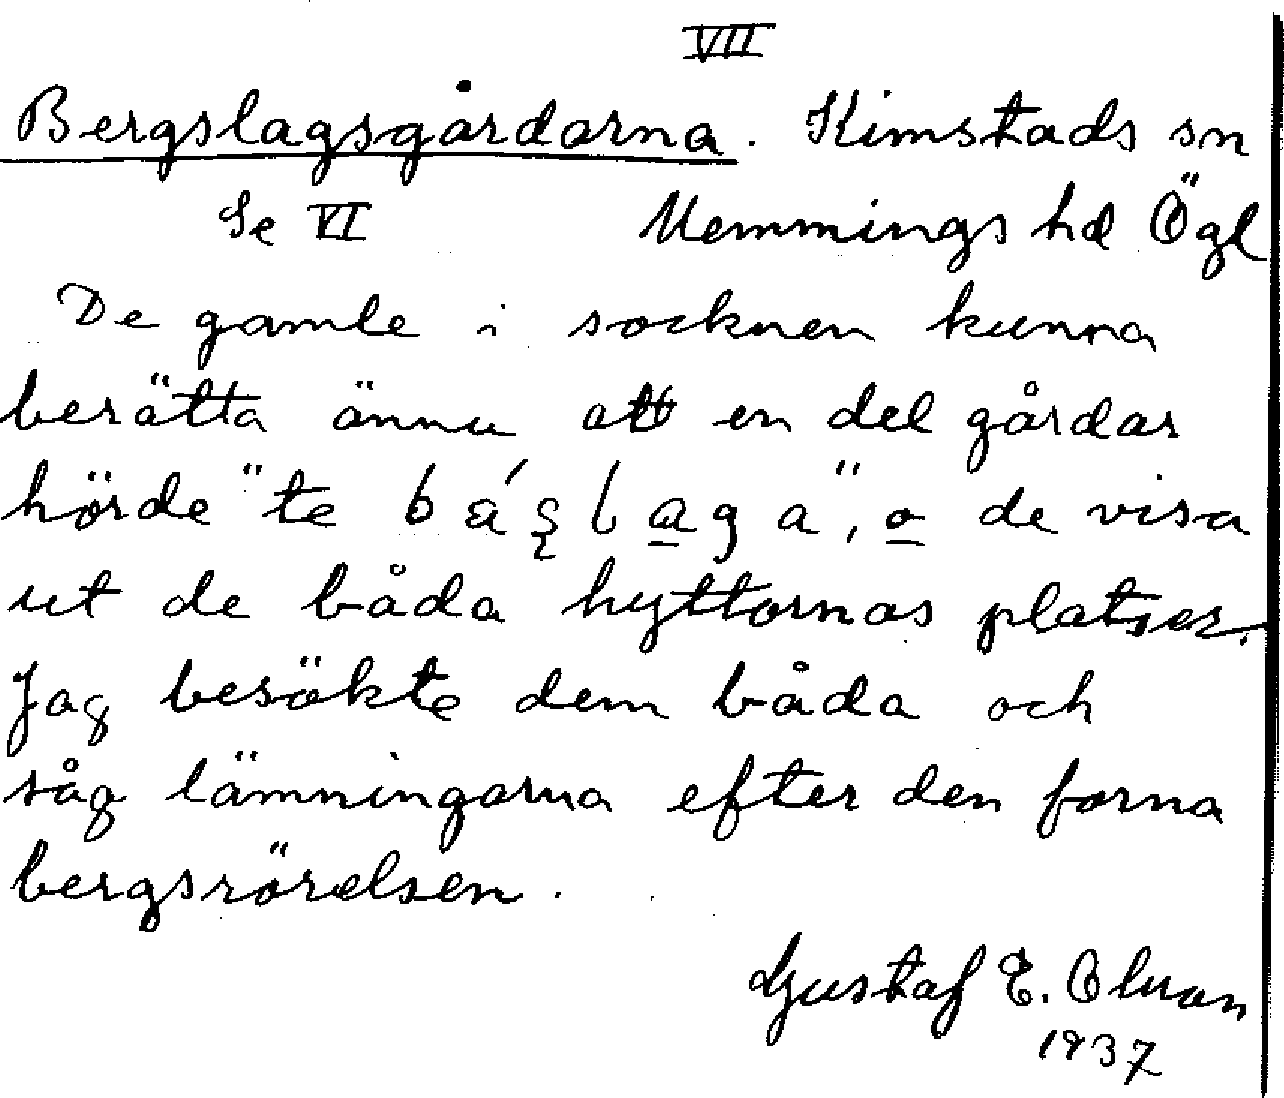 VII
Bergslagsgårdarna. Kimstads sn
Se VI Memmings hd Ögl
De gamle i socknen kunna
berätta ännu att en del gårdar
hörde "te
de visa
ut de båda hyttornas platser.
Jag besökte dem båda och
såg lämningarna efter den forna
bergsrörelsen.
Gustaf E.
1937